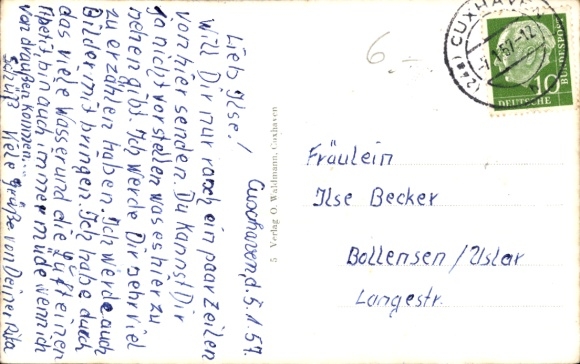 Cuxhaven d. 5.1.57.
Lieb Ilse!
Will Dir nur rasch ein paar Zeilen
von hier senden. Du kannst Dir
ja nicht vorstellen was es hier zu
sehen gibt. Ich werde Dir sehr viel
zu erzählen haben. Ich werde auch
Bilder mit bringen. Ich habe durch
das viele Wasser und die Luft einen
Apetit bin auch immer müde wenn ich
von draußen komme...
Schluß Viele Grüße von Deiner Rita
5 Verlag O. Waldmann, Cuxhaven
6.-
CUXHAVEN
(24a)
1.57-12
DEUTSCHE
BUNDESPOST
10
Fräulein
Ilse Becker
Bollensen/Uslar
Langestr.